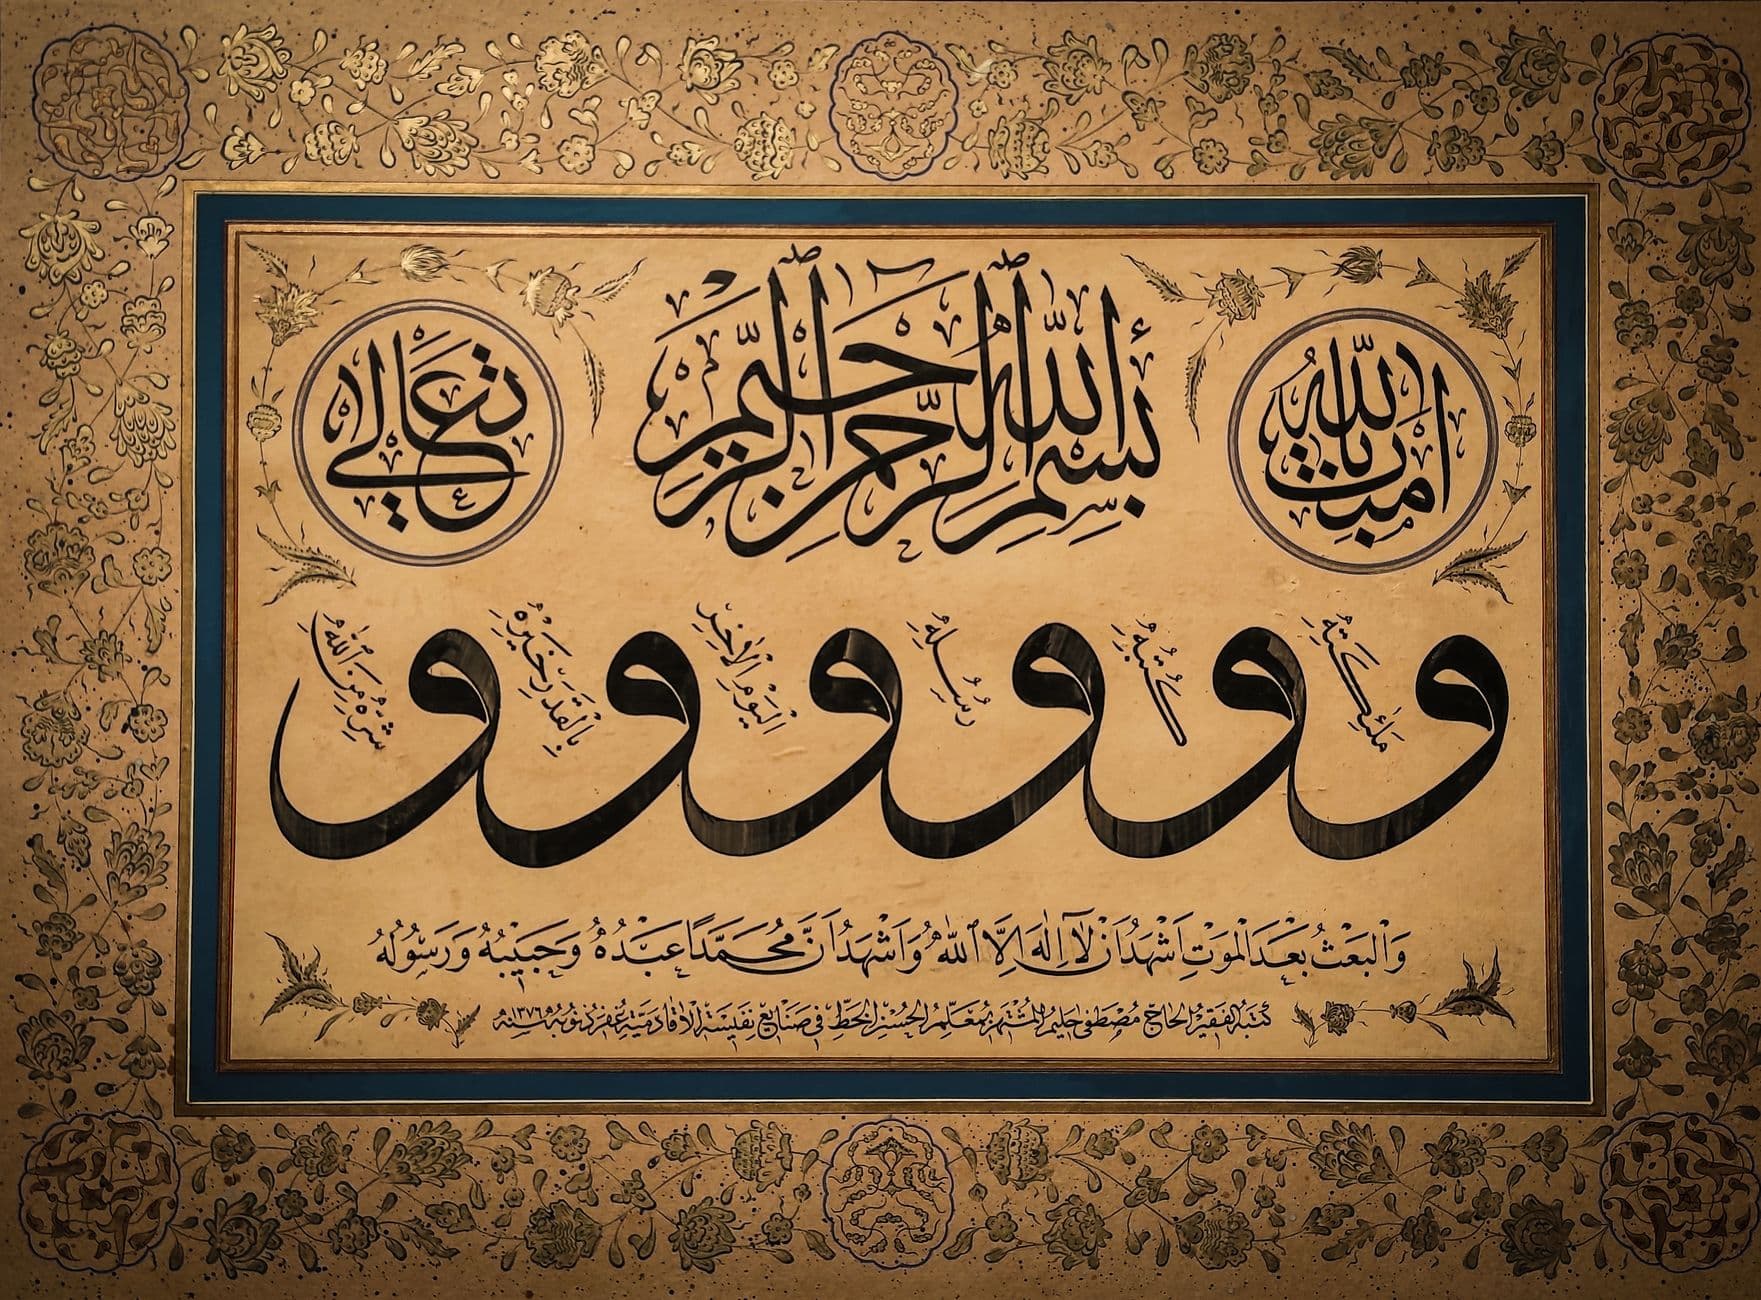 بِسْمِ اللّٰهِ الرَّحْمٰنِ الرَّحِيمِ
اٰمَنْتُ بِاللّٰهِ
تَعَالٰى
وَ مَلٰئِكَتِهِ وَ كُتُبِهِ وَ رُسُلِهِ وَ الْيَوْمِ الْاٰخِرِ وَ بِالْقَدَرِ خَيْرِهِ وَ شَرِّهِ مِنَ اللّٰهِ
وَالْبَعْثُ بَعْدَ الْمَوْتِ اَشْهَدُ اَنْ لَآ اِلٰهَ اِلَّا اللّٰهُ وَاَشْهَدُ اَنَّ مُحَمَّدًا عَبْدُهُ وَحَبِيْبُهُ وَرَسُولُهُ
كَتَبَهُ الْفَقِيرُ الْحَاجّ مُصْطَفٰى حَلِيمُ الْمُشْتَهِرُ بِمُعَلِّمِ الْحُسْنِ الْخَطِّ فِي صَنَايِعِ نَفِيسَةِ الْاٰقَادَمِيَّةِ غُفِرَ ذُنُوبُهُ سَنَة ١٣٧٦